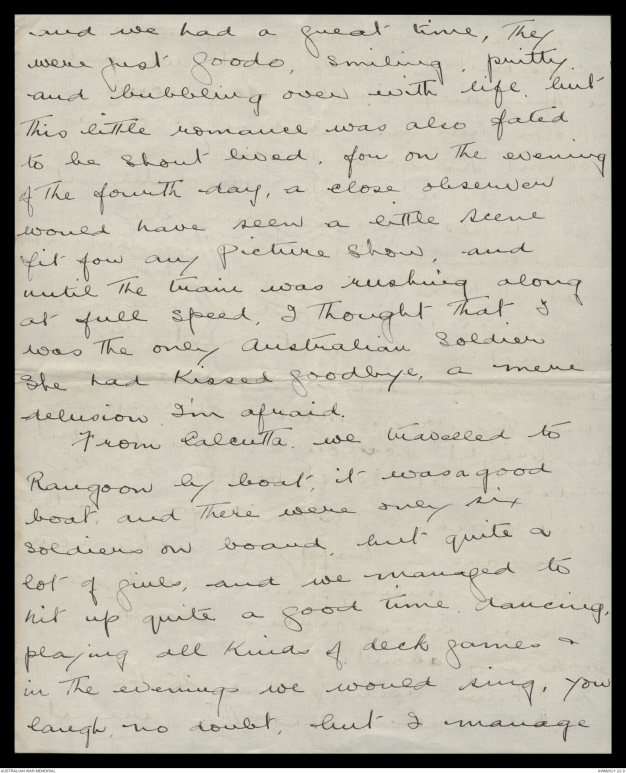 and we had a great time, They
were just goodo, smiling, pritty
and bubbling over with life. but
this little romance was also fated
to be short lived. for on the evening
of the fourth day, a close observer
would have seen a little scene
fit for any picture show, and
until the train was rushing along
at full speed, I thought that I
was the only Australian soldier
she had kissed goodbye, a mere
delusion I'm afraid.
From Calcutta. we travelled to
Rangoon by boat, it was a good
boat, and there were only six
soldiers on board, but quite a
lot of girls, and we managed to
hit up quite a good time. dancing,
playing all kinds of deck games &
in the evenings we would sing, you
laugh, no doubt, but I manage
AUSTRALIAN WAR MEMORIAL